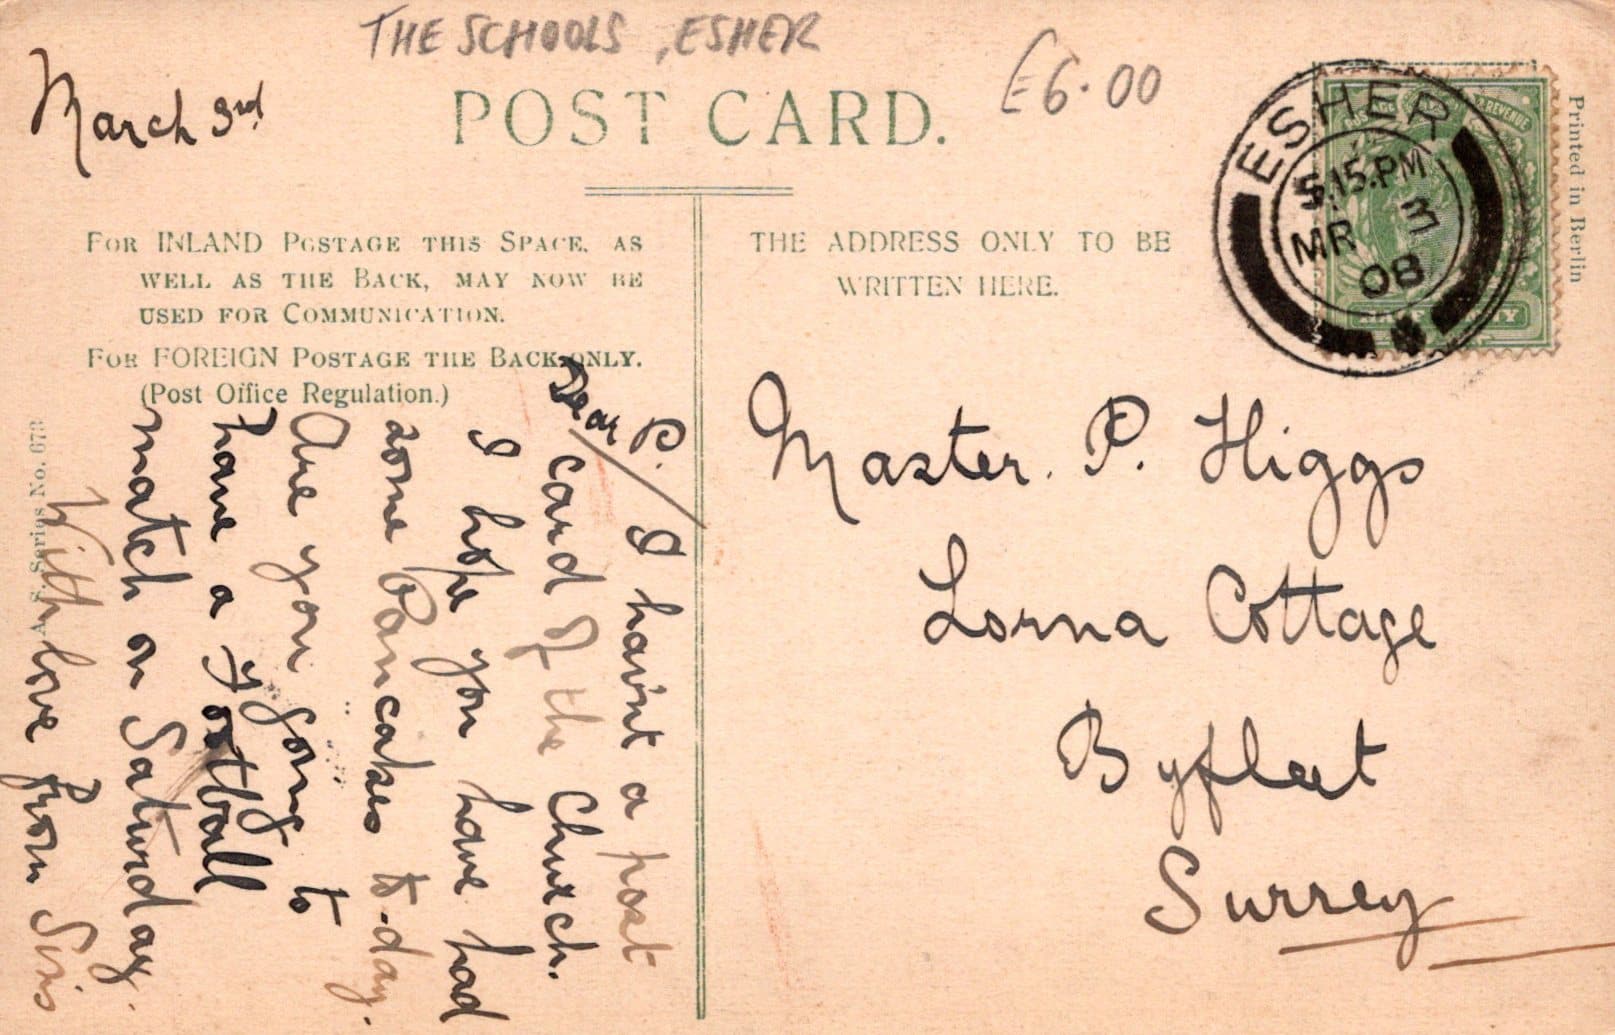 THE SCHOOLS, ESHER
£6.00
March 3rd
POST CARD.
FOR INLAND POSTAGE THIS SPACE, AS
WELL AS THE BACK, MAY NOW BE
USED FOR COMMUNICATION.
FOR FOREIGN POSTAGE THE BACK ONLY.
(Post Office Regulation.)
THE ADDRESS ONLY TO BE
WRITTEN HERE.
ESHER
5.15.PM
MR 3
08
POSTAGE & REVENUE
HALF PENNY
Printed in Berlin
Dear P./ I hav'nt a post
card of the Church.
I hope you have had
some Pancakes to-day.
Are you going to
have a Football
match on Saturday.
With love from Siris
Series No. 673
Master. P. Higgs
Lorna Cottage
Byfleet
Surrey